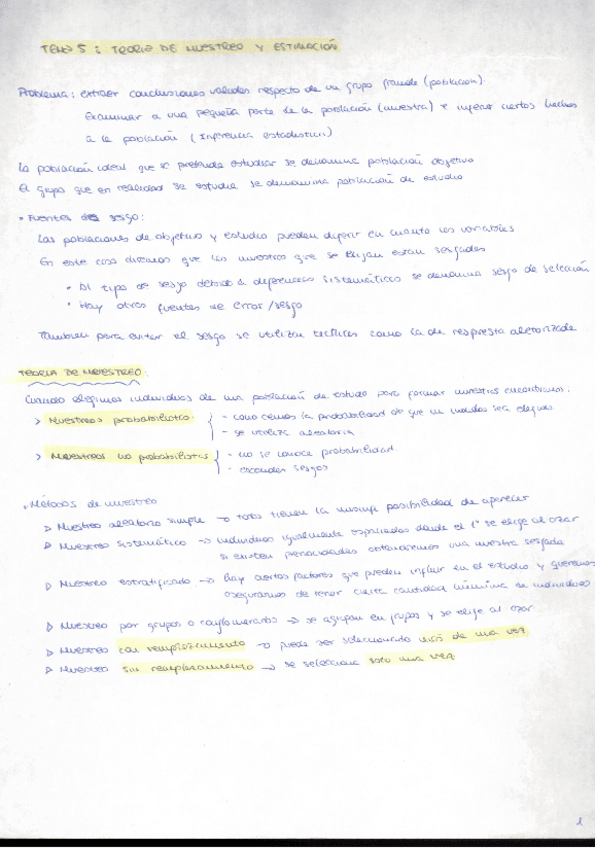 TEMA 5: TEORIA DE MUESTREO Y ESTIMACIÓN
Problema: extraer conclusiones validas respecto de un grupo grande (poblacion).
Examinar a una pequeña parte de la población (muestra) e inferir ciertos hechos
a la población (Inferencia estadistica)
La población ideal que se pretende estudiar se denomina población objetivo
El grupo que en realidad se estudia se denomina población de estudio
• Fuentes de sesgo:
Las poblaciones de objetivo y estudio pueden diferir en cuanto las variables
En este caso diremos que las muestras que se elijan estan sesgadas
• Al tipo de sesgo debido a diferencias sistemáticas se denomina sesgo de selección
• Hay otras fuentes de error/sesgo
Tambien para evitar el sesgo se utilizan tecnicas como la de respuesta aleatorizada
TEORIA DE MUESTREO:
Cuando elegimos individuos de una población de estudio para formar muestras
> Muestreos probabilistico: - conocemos la probabilidad de que un individuo sea elegido
- se utiliza aleatoria
> Muestreos no probabilistas - no se conoce probabilidad
- esconden sesgos
• Métodos de muestreo
▷ Muestreo aleatorio simple → todos tienen la misma posibilidad de aparecer
▷ Muestreo sistemático → individuos igualmente espaciados desde el 1º se elige al azar
si existen periocidades obtenemos una muestra sesgada
▷ Muestreo estratificado → hay ciertos factores que pueden influir en el estudio y queremos
asegurarnos de tener cierta cantidad minima de individuos
▷ Muestreo por grupos o conglomerados → se agrupan en grupos y se elige al azar
▷ Muestreo con remplazamiento → puede ser seleccionado más de una vez
▷ Muestreo sin remplazamiento → se selecciona solo una vez
1